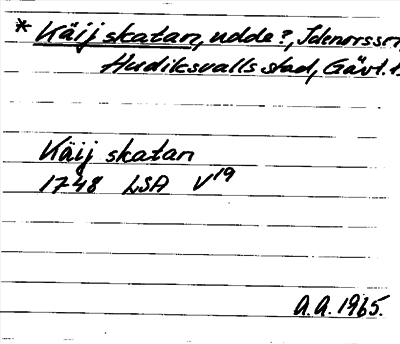 * Käijskatan, udde?, Idenorssn,
Hudiksvalls stad, Gävl. l
Käij skatan
1748 LSA V19
A.A. 1965.